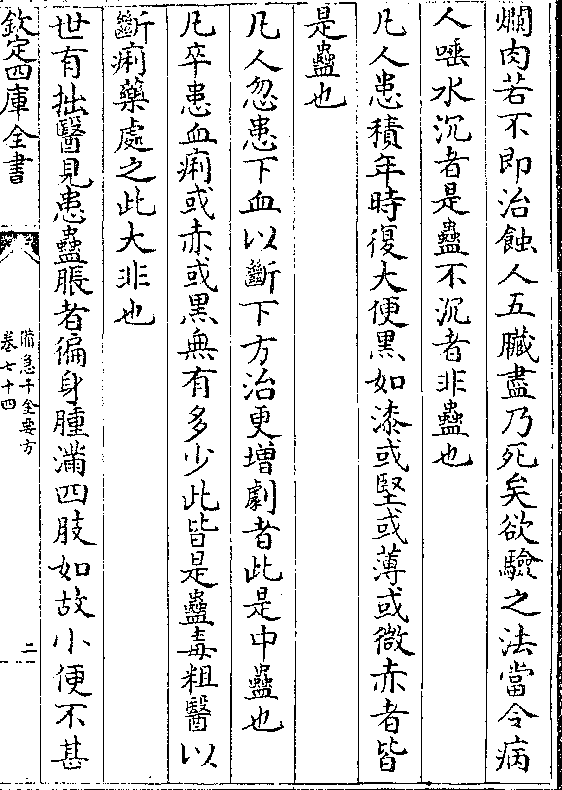 爛肉若不即治蝕人五臟盡乃死矣欲驗之法當令病
人唾水沉者是蠱不沉者非蠱也
凡人患積年時復大便黑如漆或堅或薄或微赤者皆
是蠱也
凡人忽患下血以斷下方治更增劇者此是中蠱也
凡卒患血痢或赤或黑無有多少此皆是蠱毒粗醫以
斷痢藥處之此大非也
世有拙醫見患蠱脹者徧身腫滿四肢如故小便不甚
欽定四庫全書
備急千金要方
卷七十四
二